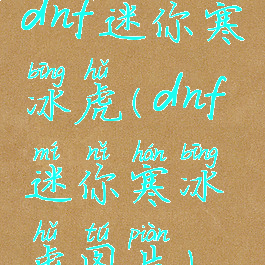 dnf迷你寒
bīng hǔ
冰虎(dnf
mí nǐ hán bīng
迷你寒冰
hǔ tú piàn
虎图片)